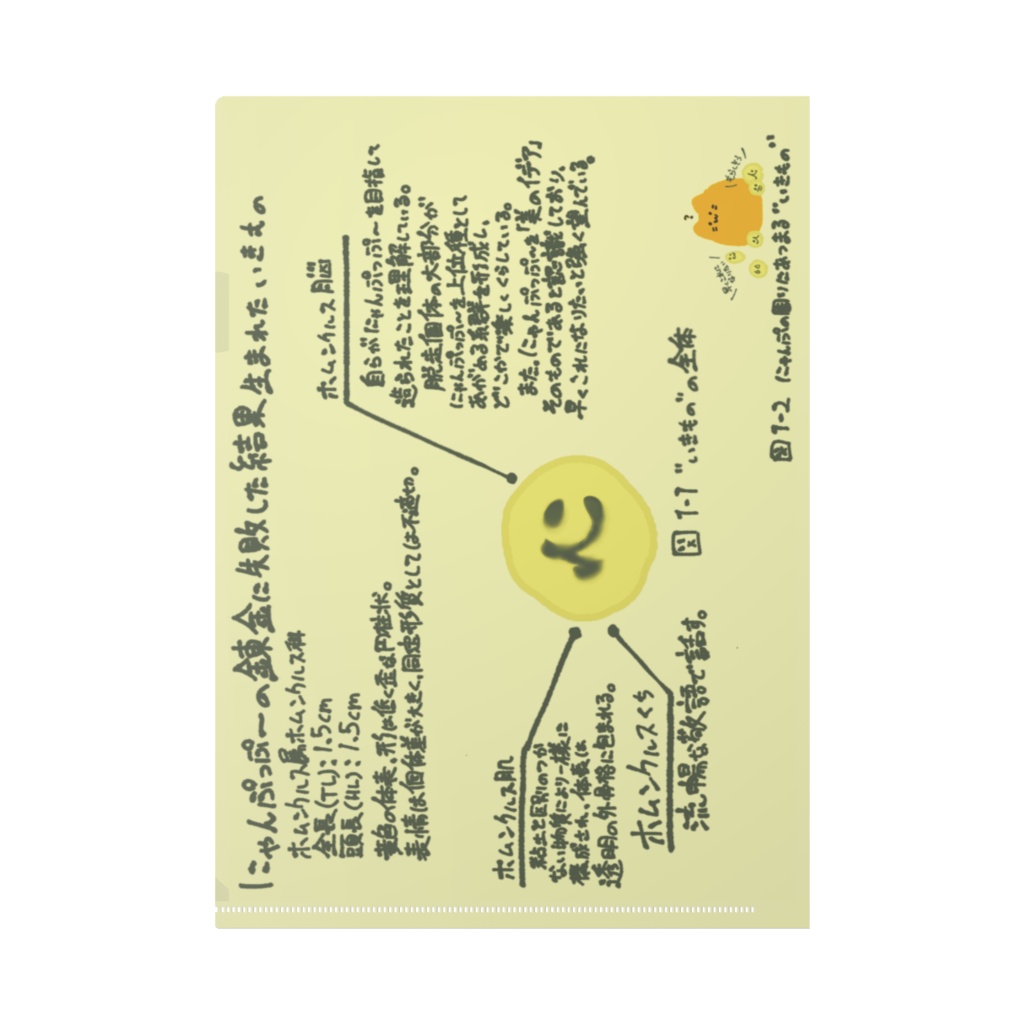 にゃんぷっぷーの錬金に失敗した結果生まれたいきもの
ホムンクルス属ホムンクルス科
全長(TL):1.5cm
頭長(HL):1.5cm
黄色の体表、形は低く歪な円柱状。
表情は個体差が大きく、同定形質としては不適切。
ホムンクルス脳
自らがにゃんぷっぷーを目指して
造られたことを理解している。
脱走個体の大部分が
にゃんぷっぷーを上位種として
あがめる系群を形成し、
どこかで楽しくくらしている。
また、にゃんぷっぷーを「美のイデア」
そのものであると認識しており、
早くこれになりたいと強く望んでいる。
ホムンクルス肌
粘土と区別のつか
ない物質により一様に
構成され、体表は
透明の外骨格に包まれる。
ホムンクルスくち
流暢な敬語で話す。
図1-1 "いきもの"の全体
?
図1-2 にゃんぷの周りにあつまる"いきもの"